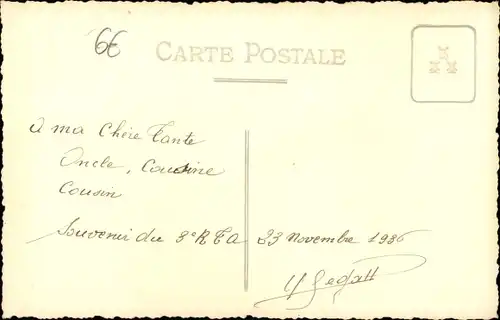 6€
CARTE POSTALE
a ma Chère Tante
Oncle, Cousine
Cousin
Souvenir du 8e R T A 23 Novembre 1936